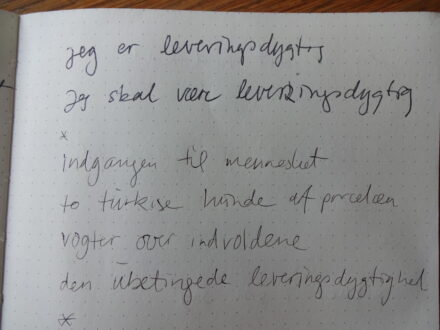 jeg er leveringsdygtig
jeg skal være leveringsdygtig
*
indgangen til mennesket
to türkise hunde af porcelæn
vogter over indvoldene
den ubetingede leveringsdygtighed
*